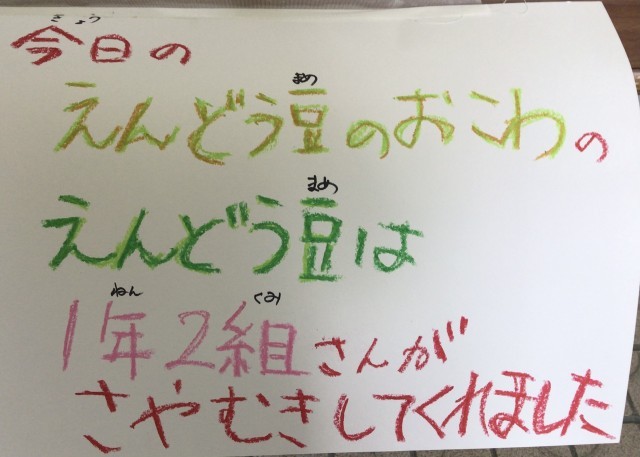 きょう
今日の
まめ
えんどう豆のおこわの
まめ
えんどう豆は
ねん くみ
1年2組さんが
さやむきしてくれました